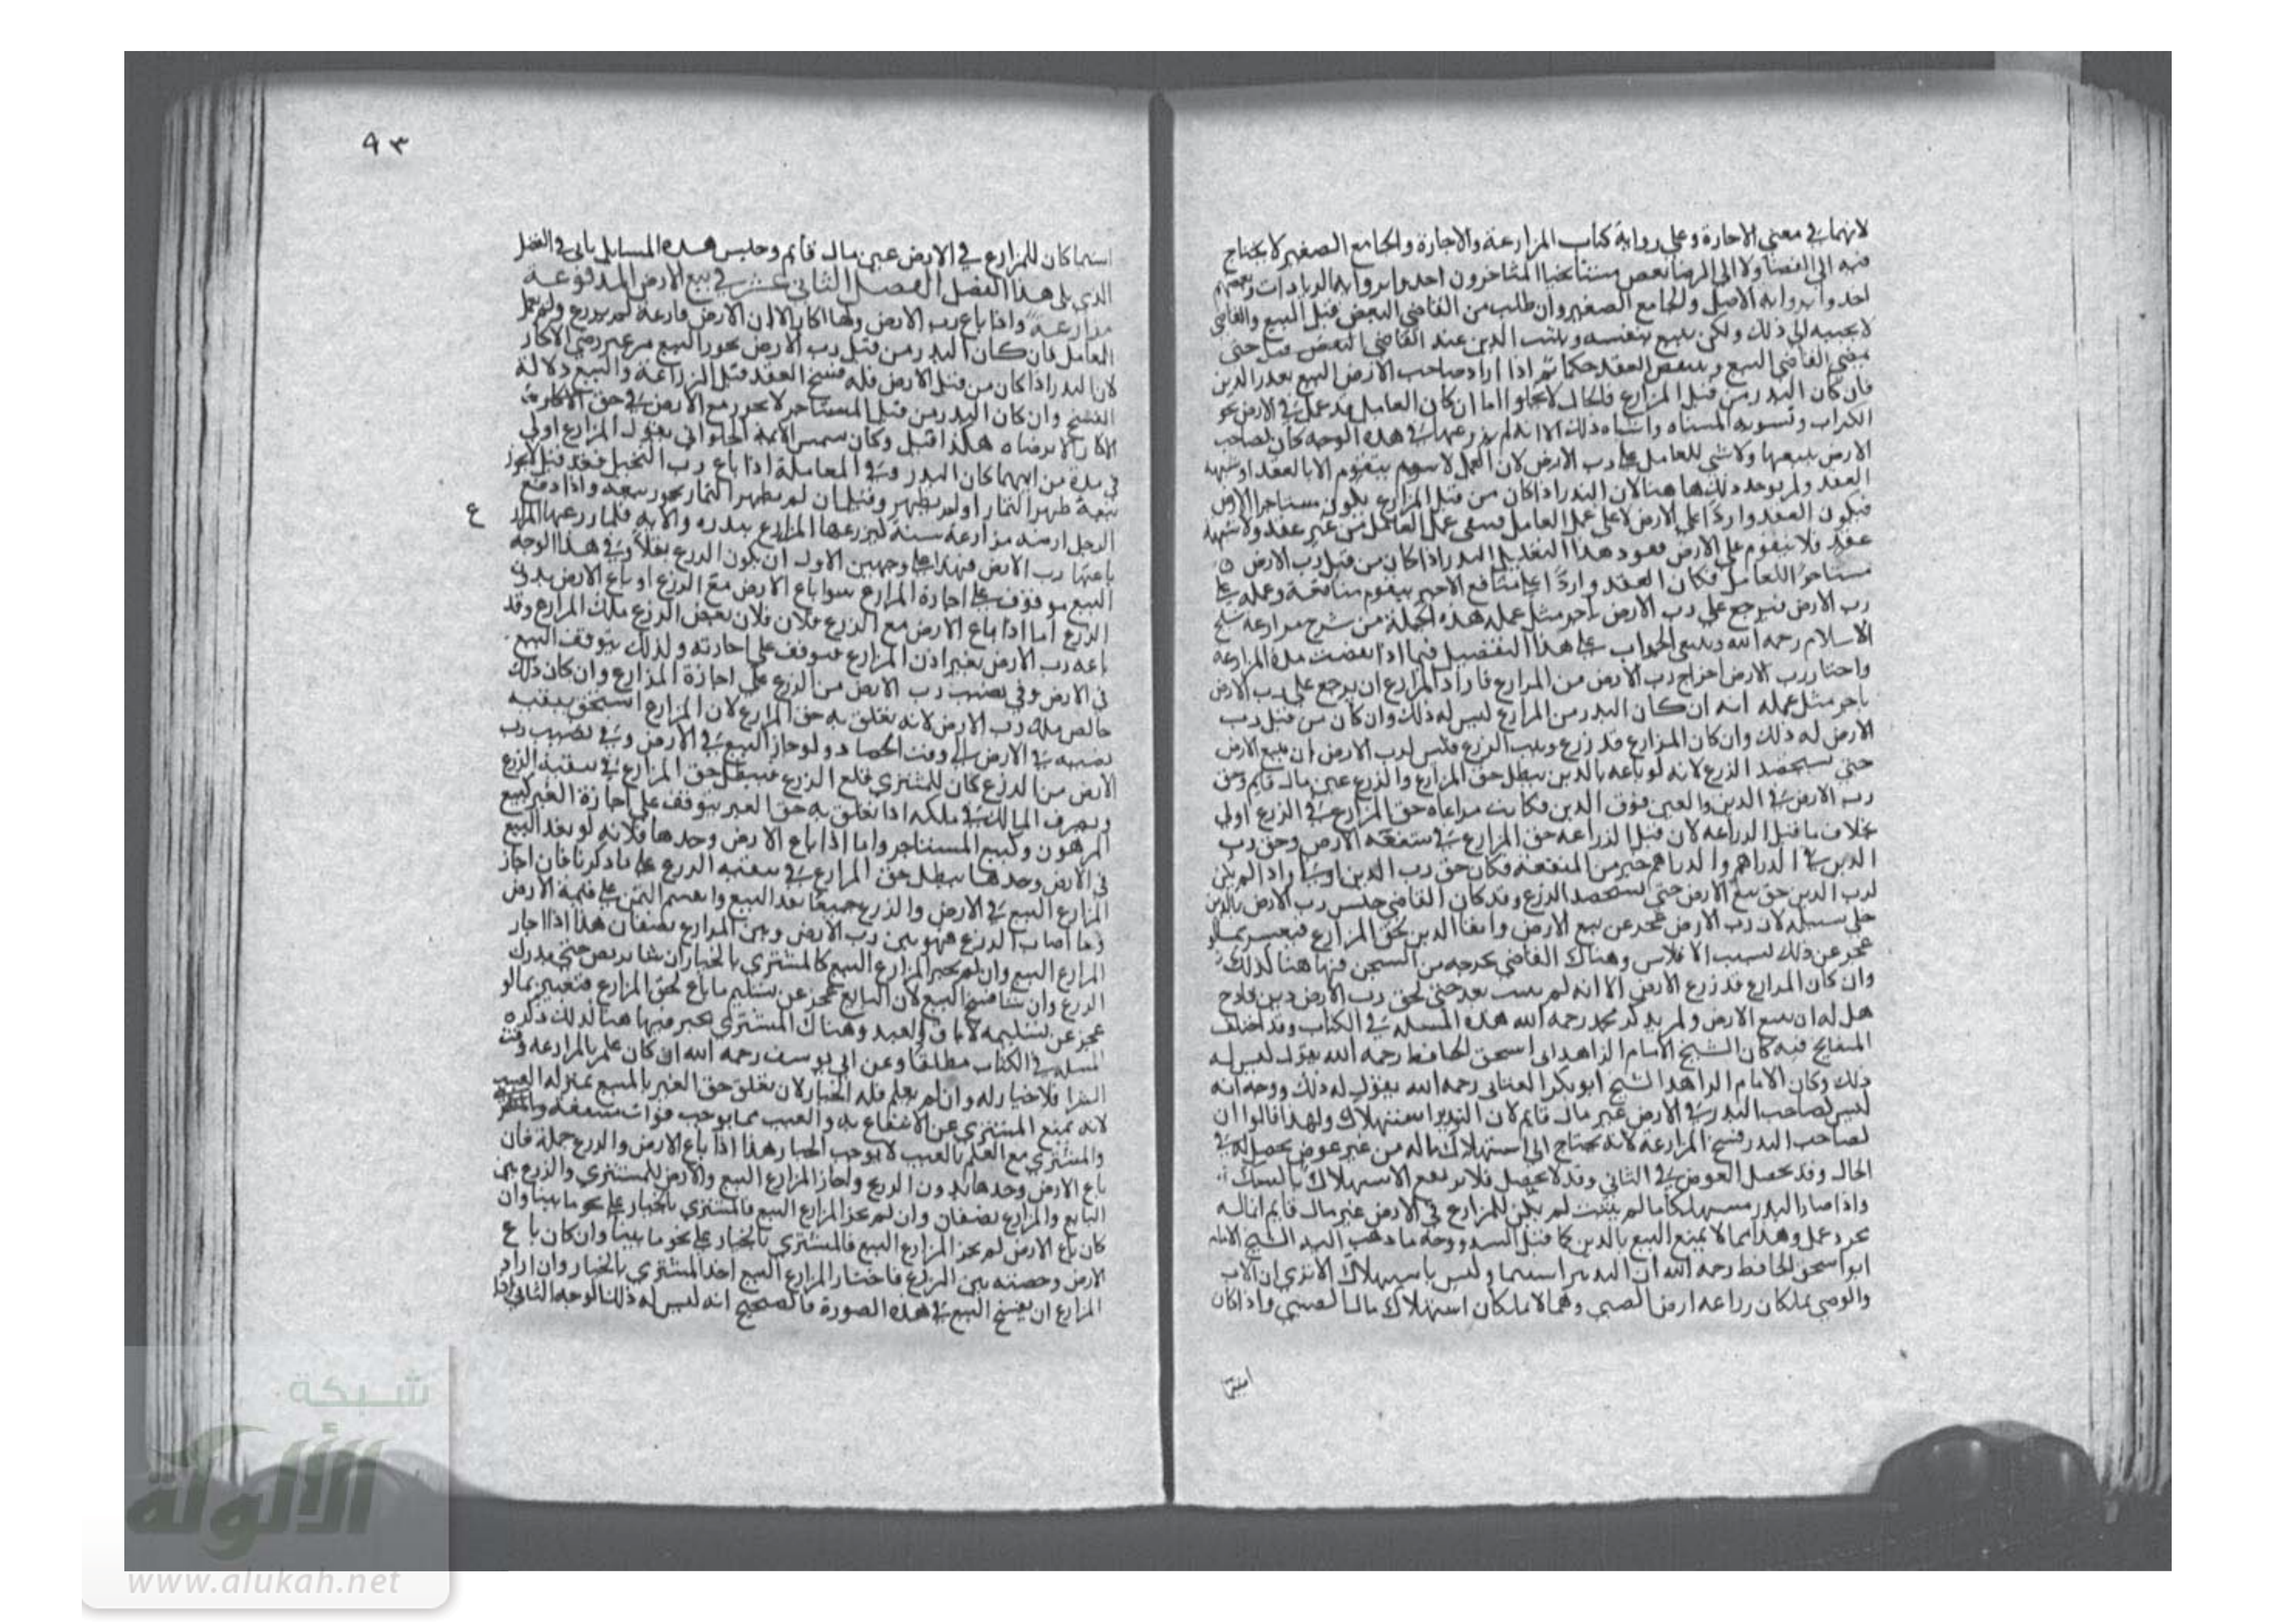 لانهما في معنى الاجارة وعلى رواية كتاب المزارعة والاجارة والجامع الصغير لا يحتاج
فيه الى القضا ولا الى الرضا بعض مشايخنا المتاخرون اخذوا برواية الزيادات وبعضهم
اخذوا برواية الاصل والجامع الصغير وان طلب من القاضي النقض قبل البيع والقاضي
لا يجيبه الى ذلك ولكن يبيع بنفسه ويثبت الدين عند القاضي النقض حتى
يمضي القاضي البيع وينقض العقد حكما ثم اذا اراد صاحب الارض البيع بعذر الدين
فان كان البذر من قبل المزارع فالحال لا يخلوا اما ان كان العامل قد عمل في الارض نحو
الكراب وتسوية المسناه واشباه ذلك الا انه لم يزرعها ففي هذه الوجه كان لصاحب
الارض بيعها ولا شي للعامل على رب الارض لان العمل لا يتقوم الا بالعقد او شبهة
العقد ولم يوجد ذلك ها هنا لان البذر اذا كان من قبل المزارع يكون مستاجرا الارض
فيكون العقد واردا على الارض لا على عمل العامل فبقي عمل العامل من غير عقد ولا شبهة
عقد فلا يتقوم على الارض هذا التعليل البذر اذا كان من قبل رب الارض
مستاجرا للعامل فكان العقد واردا على منافع الاجير يتقوم منافعه وعمله على
رب الارض فيرجع على رب الارض باجر مثل عمله هذه الجملة من شرح مزارعة شيخ
الاسلام رحمه الله الجواب على هذا التفصيل فيما اذا انقضت مدة المزارعة
واختار رب الارض اخراج رب الارض من المزارع فاراد المزارع ان يرجع على رب الارض
باجر مثل عمله انه ان كان البذر من المزارع ليس له ذلك وان كان من قبل رب
الارض له ذلك وان كان المزارع قد زرع ونبت الزرع فليس لرب الارض ان يبيع الارض
حتى يستحصد الزرع لانه لو باعه بالدين يبطل حق المزارع والزرع عين مال قايم وحق
رب الارض في الدين والعين فوق الدين فكانت مراعاة حق المزارع في الزرع اولى
بخلاف ما قبل الزراعة لان قبل الزراعة حق المزارع في منفعة الارض وحق رب
الدين في الدراهم والدراهم خير من المنفعة فكان حق رب الدين اولى واذا لم يكن
لرب الدين حق بيع الارض حتى يستحصد الزرع وقد كان القاضي حبس رب الارض بالدين
خلى سبيله لان رب الارض عجز عن بيع الارض وايفا الدين لحق المزارع فيعتبر بما لو
عجز عن ذلك بسبب الافلاس وهناك القاضي يخرجه من السجن فها هنا كذلك
وان كان المزارع قد زرع الارض الا انه لم ينبت بعد حتى لحق رب الارض دين فادح
هل له ان يبيع الارض ولم يذكر محمد رحمه الله هذه المسلة في الكتاب وقد اختلف
المشايخ فيه كان الشيخ الامام الزاهد ابو اسحق الحافظ رحمه الله يقول ليس له
ذلك وكان الامام الزاهد الشيخ ابو بكر العتابي رحمه الله يقول له ذلك ووجهه انه
ليس لصاحب البذر في الارض عين مال قايم لان التبذير استهلاك ولهذا قالوا ان
لصاحب البذر فسخ المزارعة لانه يحتاج الى استهلاك ماله من غير عوض يحصل له في
الحال وقد يحصل العوض في الثاني وقد لا يحصل فلا الاستهلاك بالشك
واذا صار البذر مستهلكا ما لم ينبت لم يكن للمزارع في الارض عين مال قايم انما له
مجرد عمل وهذا مما لا يمنع البيع بالدين كما قبل ووجه ما ذهب اليه الشيخ الامام
ابو اسحق الحافظ رحمه الله ان التبذير استنما وليس باستهلاك الا ترى ان الاب
والوصي يملكان زراعة ارض الصبي وهما لا يملكان استهلاك مال الصبي واذا كان
استنما
٩٣
استنما كان للمزارع في الارض عين مال قايم وجنس هذه المسايل ياتي في الفصل
الذي يلي هذا الفصل الفصل الثاني عشر في بيع الارض المدفوعة
مزارعة واذا باع رب الارض الارض فارغة لم يزرع ولم يعمل
العامل فان كان البذر من قبل رب الارض يجوز البيع من غير رضى الاكار
لان البذر اذا كان من قبل الارض فله فسخ العقد قبل الزراعة والبيع دلالة
الفسخ وان كان البذر من قبل المستاجر لا يجوز بيع الارض في حق الاكار
الاكار الا برضاه هكذا قيل وكان شمس الايمة الحلواني يقول المزارع اولى
في مدة من ايهما كان البذر وفي المعاملة اذا باع رب النخيل فقد قيل يجوز
بيعه ظهر الثمار او لم يظهر وقيل ان لم يظهر الثمار يجوز بيعه واذا دفع
ع
الرجل ارضه مزارعة سنة ليزرعها المزارع ببذره والاته فلما زرعها المزارع
باعها رب الارض فهذا على وجهين الاول ان يكون الزرع بقلا وفي هذا الوجه
البيع موقوف على اجازة المزارع سوا باع الارض مع الزرع او باع الارض بدون
الزرع اما اذا باع الارض مع الزرع فلان فلان بعض الزرع ملك المزارع وقد
باعه رب الارض بغير اذن المزارع فيتوقف على اجازته وكذلك يتوقف البيع
في الارض وفي نصيب رب الارض من الزرع على اجازة المزارع وان كان ذلك
خالص ملك رب الارض لانه تعلق به حق المزارع لان المزارع استحق تبقية
نصيبه في الارض الى وقت الحصاد ولو جاز البيع في الارض وفي نصيب رب
الارض من الزرع كان للمشتري قلع الزرع فيبطل حق المزارع في تبقية الزرع
وتصرف المالك في ملكه اذا تعلق به حق الغير يتوقف على اجازة الغير كبيع
المرهون وكبيع المستاجر واما اذا باع الارض وحدها فلانه لو نفذ البيع
في الارض وحدها يبطل حق المزارع في تبقية الزرع على ما ذكرنا فان اجاز
المزارع البيع في الارض والزرع جميعا نفذ البيع وانقسم الثمن على قيمة الارض
فما اصاب الزرع فهو بين رب الارض وبين المزارع نصفان هذا اذا اجاز
المزارع البيع وان لم يجز المزارع البيع فالمشتري بالخيار ان شا تربص حتى يدرك
الزرع وان شا فسخ البيع لان البايع عجز عن تسليم ما باع لحق المزارع فيعتبر بما لو
عجز عن تسليمه لاباق العبد وهناك المشتري يخير فيها هنا كذلك ذكره
المسلة في الكتاب مطلقا وعن ابي يوسف رحمه الله ان كان علم بالمزارعة وقت
الشرا فلا خيار له وان لم يعلم فله الخيار لان تعلق حق الغير بالمبيع بمنزلة العيب
لانه يمنع المشتري عن الانتفاع به والعيب مما يوجب فوات منفعة
والمشتري مع العلم بالعيب لا يوجب الخيار هذا اذا باع الارض والزرع جملة فان
باع الارض وحدها بدون الزرع واجاز المزارع البيع والارض للمشتري والزرع بين
البايع والمزارع نصفان وان لم يجز المزارع البيع فالمشتري بالخيار على نحو ما بينا وان
كان باع الارض لم يجز المزارع البيع فالمشتري بالخيار على نحو ما بينا وان كان باع
الارض وحصته من الزرع فاختار المزارع البيع اخذ المشتري بالخيار وان اراد
المزارع ان يفسخ البيع في هذه الصورة فالصحيح انه ليس له ذلك الوجه الثاني اذا
شبكة
الألوكة
www.alukah.net